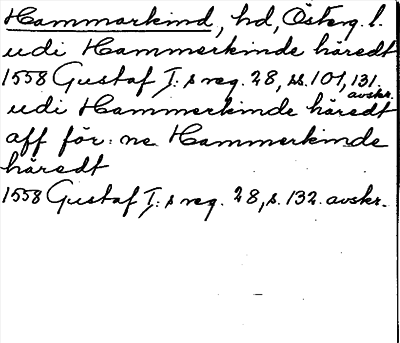 Hammarkind, hd, Österg. l.
udi Hammerkinde häredt
1558 Gustaf I:s reg. 28, ss. 101, 131. avskr.
udi Hammerkinde häredt
aff för:ne Hammerkinde
häredt
1558 Gustaf I:s reg. 28, s. 132. avskr.